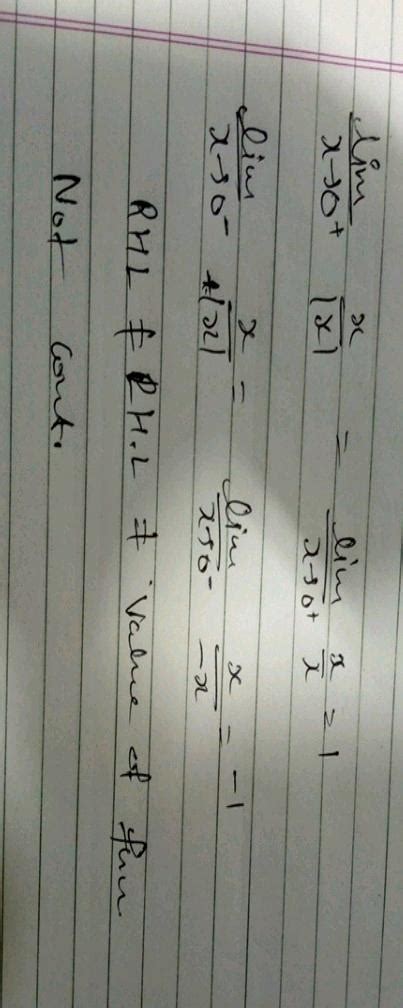 lim x→0⁺ x/|x| = lim x→0⁺ x/x = 1
lim x→0⁻ x/|x| = lim x→0⁻ x/-x = -1
RHL ≠ RH.L ≠ Value of fun
Not Cont.